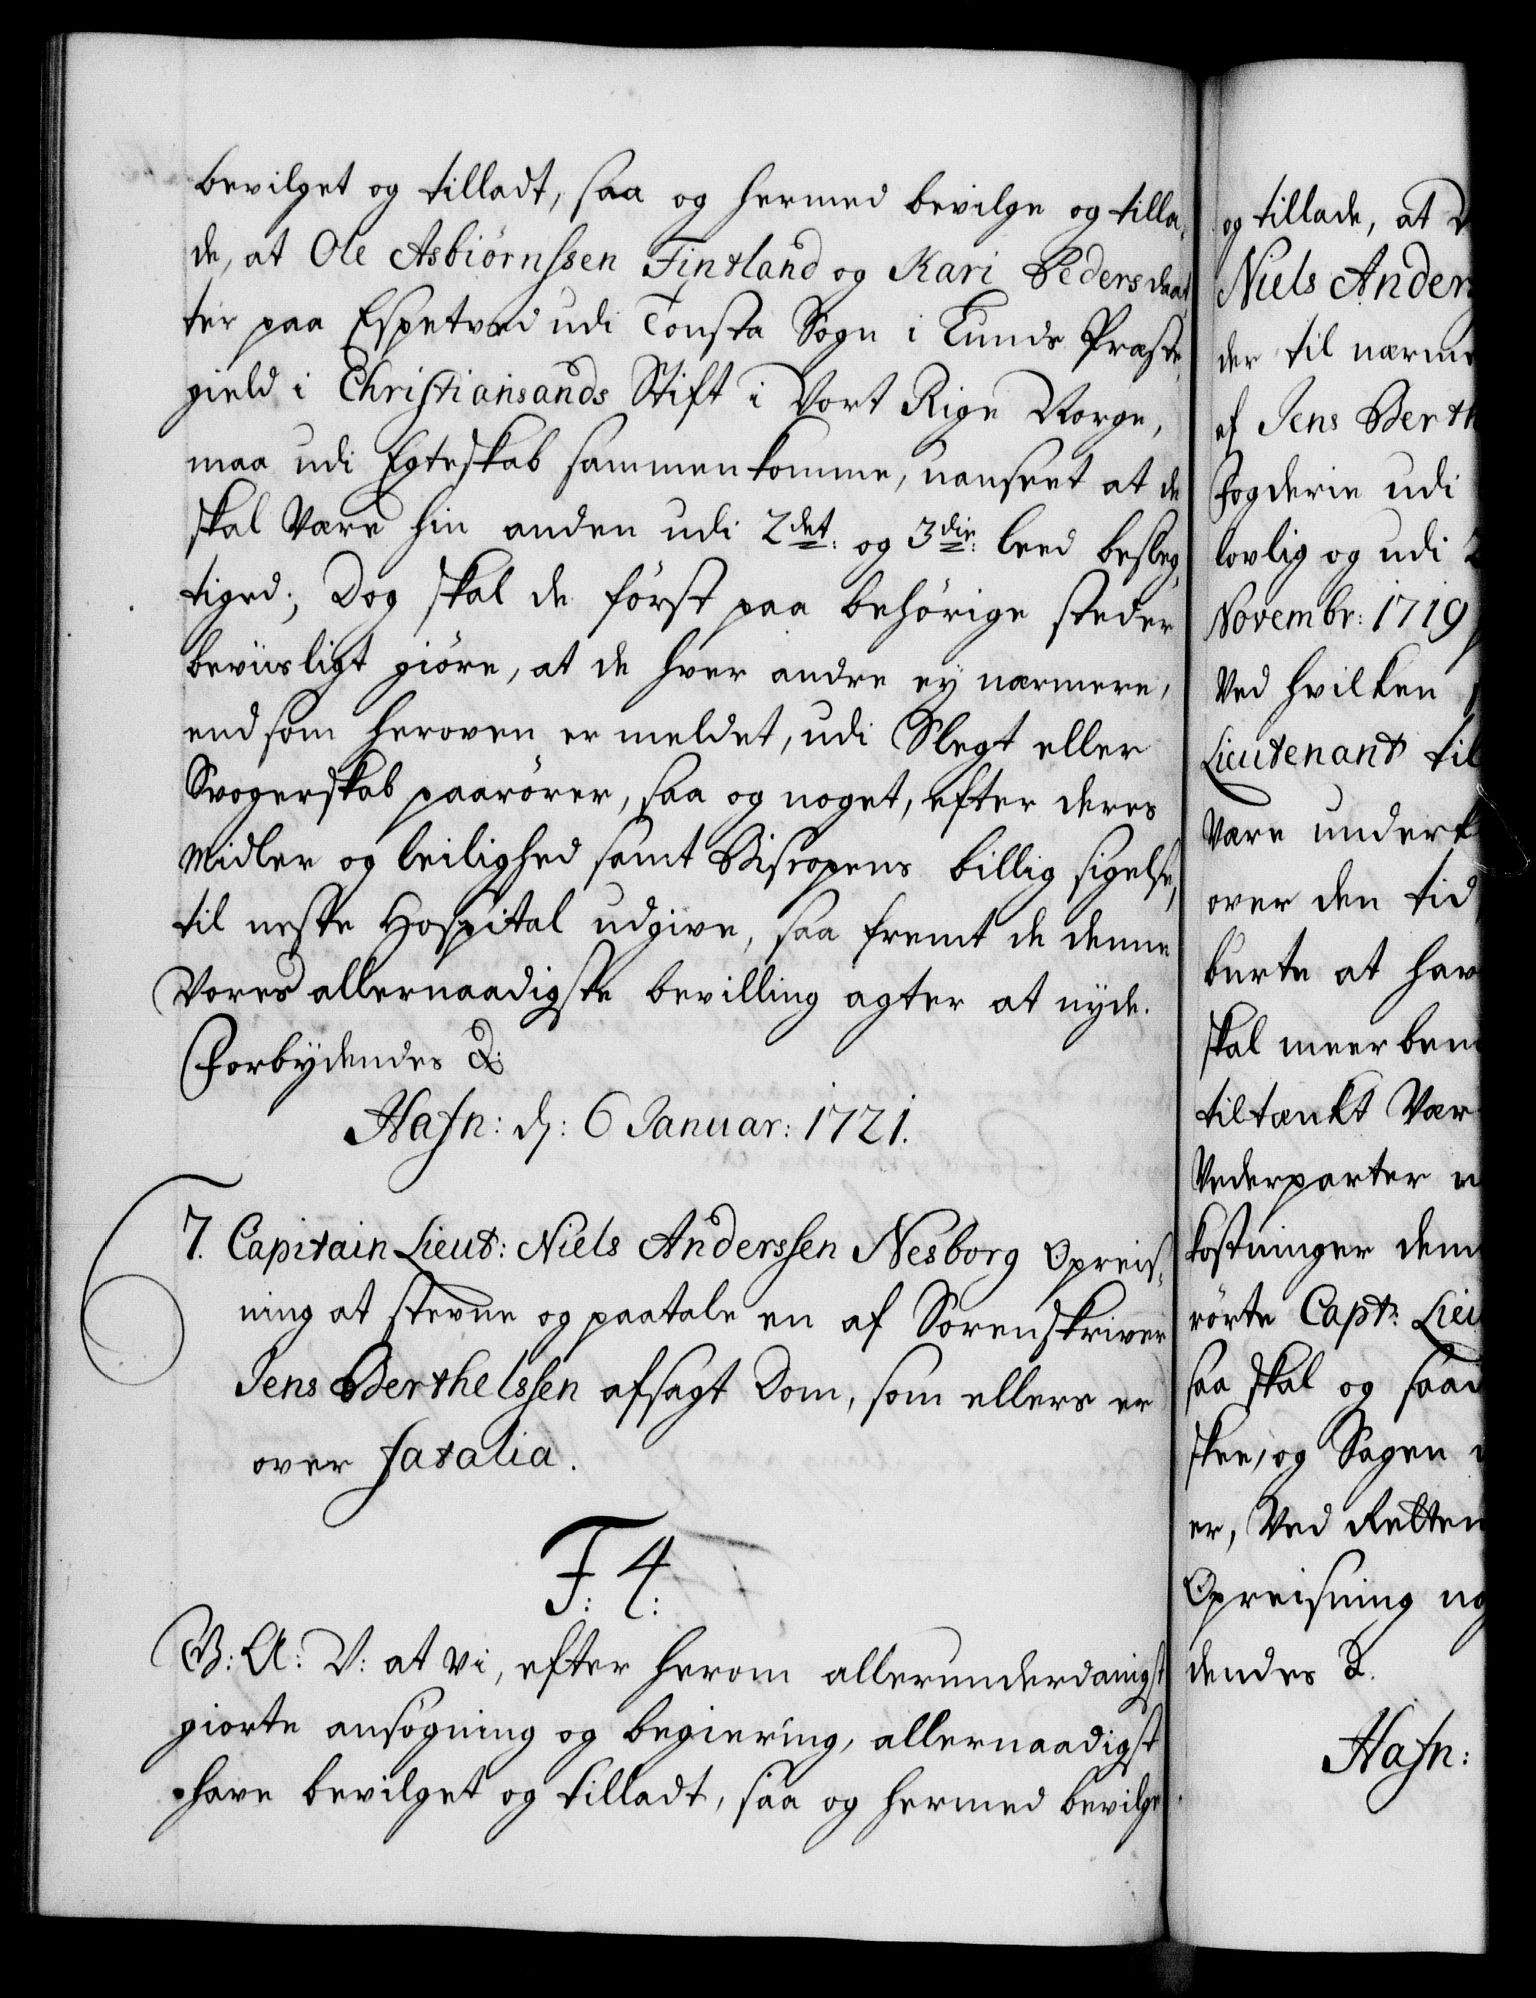 bevilget og tilladt, saa og hermed bevilge og tilla-
de, at Ole Asbiørnssen Fintland og Kari Pedersdaat-
ter paa Espetved udi Tonsta Sogn i Lunds Præste-
gield i Christiansands Stift i Vort Rige Norge,
maa udi Egteskab sammenkomme, uanseet at de
skal være hin anden udi 2det: og 3die: leed besleg-
tiged; Dog skal de først paa behørige steder
beviisligt giøre, at de hver andre ey nærmere,
end som heroven er meldet, udi Slegt eller
Svogerskab paarører, saa og noget, efter deres
Midler og leilighed samt Biscopens billig sigelse,
til neste Hospital udgive, saa fremt de denne
Vores allernaadigste bevilling agter at nyde.
Forbydendes &:
Hafn: d: 6 Januar: 1721.
7. Capitain Lieut: Niels Anderssen Nesborg Opreis-
ning at stevne og paatale en af Sorenskriver
Jens Berthelssen afsagt Dom, som ellers er
over fatalia.
F: 4:
G: A: V: at vi, efter herom allerunderdanigst
giorte ansøgning og begiering, allernaadigst
have bevilget og tilladt, saa og hermed bevilge
og tillade, at
Niels Anders
der til nærme
af Jens Berth
Fogderie udi
lovlig og udi
Novembr: 1719
ved hvilken
Lieutenant til
være underk
over den tid
burte at hav
skal meer bem
tiltænkt vær
Vederparter
kostninger dem
rørte Capt: Lieu
saa skal og saad
skee, og Sagen
er, ved Retten
Opreisning
dendes &.
Hafn: